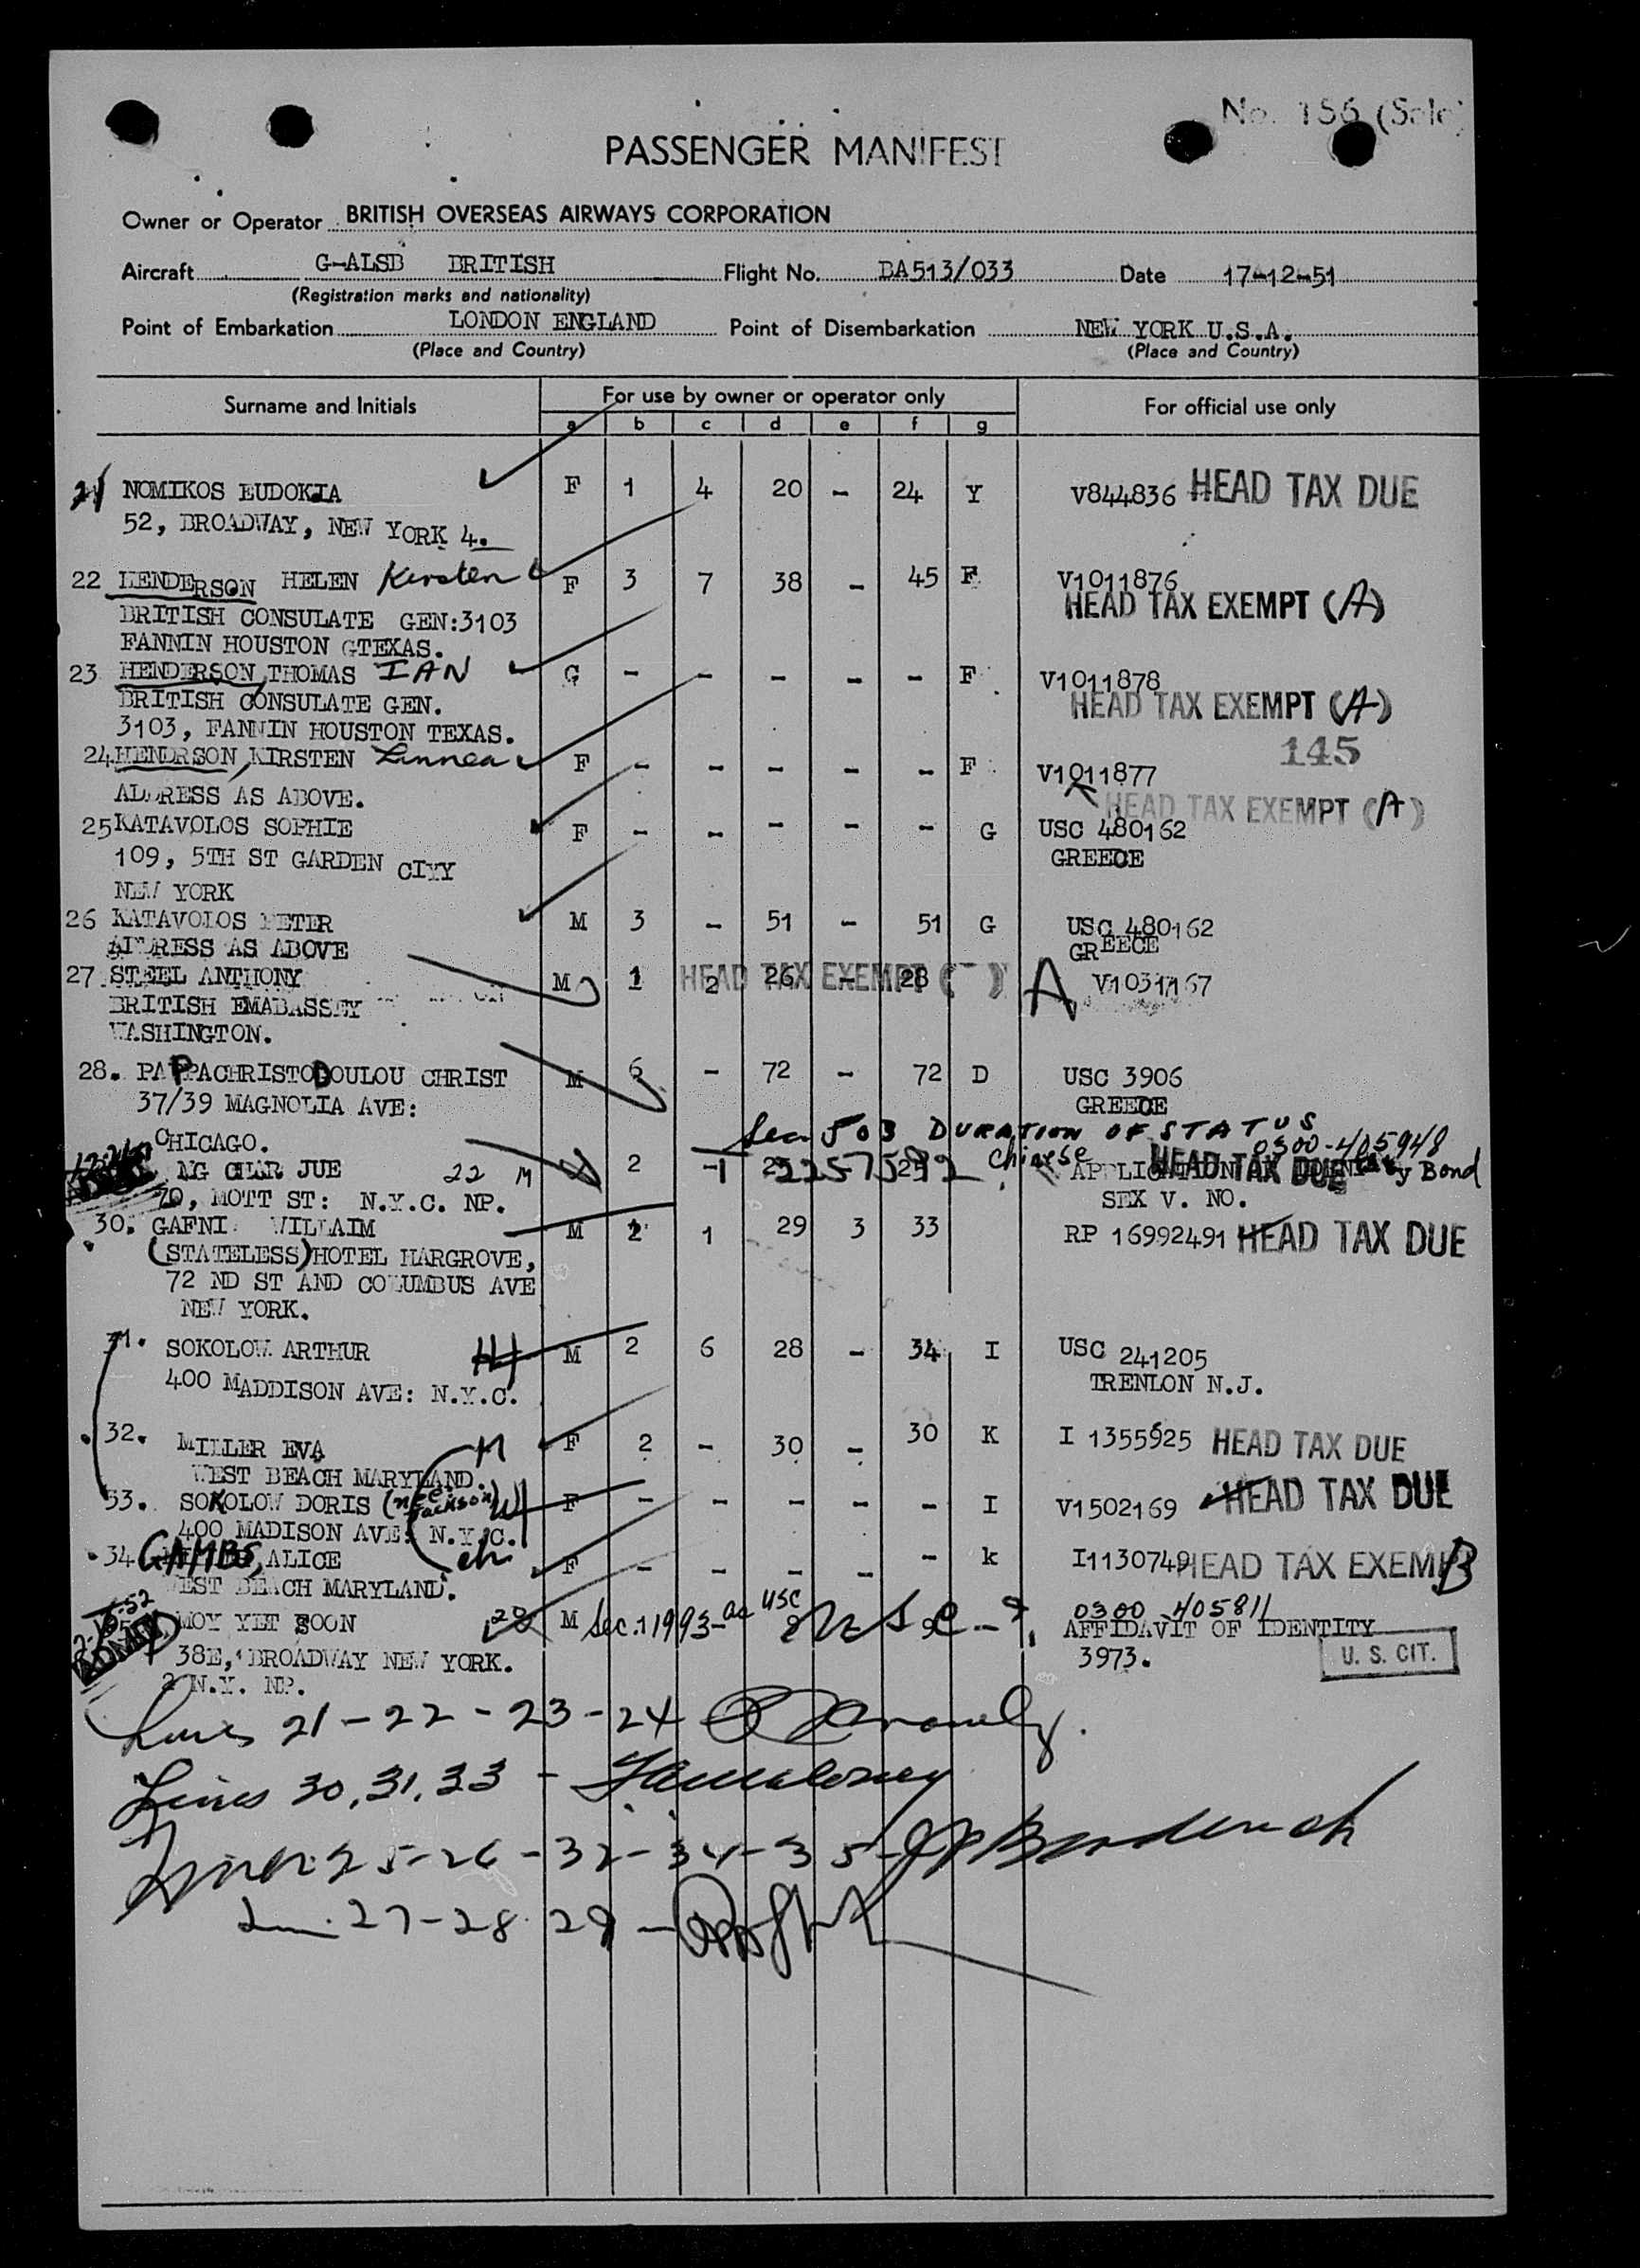 No. 156 (Sole)
PASSENGER MANIFEST
Owner or Operator BRITISH OVERSEAS AIRWAYS CORPORATION
Aircraft G-ALSB BRITISH Flight No. BA513/033 Date 17-12-51
(Registration marks and nationality)
Point of Embarkation LONDON ENGLAND Point of Disembarkation NEW YORK U.S.A.
(Place and Country) (Place and Country)
Surname and Initials For use by owner or operator only For official use only
a b c d e f g
21 NOMIKOS EUDOKIA F 1 4 20 - 24 Y V844836 HEAD TAX DUE
52, BROADWAY, NEW YORK 4.
22 HENDERSON HELEN Kirsten F 3 7 38 - 45 F V1011876
HEAD TAX EXEMPT (A)
BRITISH CONSULATE GEN:3103
FANNIN HOUSTON GTEXAS.
23 HENDERSON, THOMAS IAN G - - - - - F V1011878
BRITISH CONSULATE GEN. HEAD TAX EXEMPT (A)
3103, FANNIN HOUSTON TEXAS.
145
24 HENDRSON, KIRSTEN Linnea F - - - - - F V1011877
ADDRESS AS ABOVE. HEAD TAX EXEMPT (A)
25 KATAVOLOS SOPHIE F - - - - - G USC 480162
109, 5TH ST GARDEN CIYY GREECE
NEW YORK
26 KATAVOLOS PETER M 3 - 51 - 51 G USC 480162
ADDRESS AS ABOVE GREECE
27. STEEL ANTHONY M 1 2 26 - 28 HEAD TAX EXEMPT ( ) A V1031167
BRITISH EMABASSEY
WASHINGTON.
28. PAPPACHRISTODOULOU CHRIST M 6 - 72 - 72 D USC 3906
37/39 MAGNOLIA AVE: GREECE
CHICAGO. Sec 503 DURATION OF STATUS
0300-405948
NG CHAR JUE 22 M 2 Chinese HEAD TAX DUE by Bond
70, MOTT ST: N.Y.C. NP. SEX V. NO.
30. GAFNI WILLAIM M 2 1 29 3 33 RP 16992491 HEAD TAX DUE
(STATELESS) HOTEL HARGROVE,
72 ND ST AND COLUMBUS AVE
NEW YORK.
31. SOKOLOW ARTHUR H M 2 6 28 - 34 I USC 241205
400 MADDISON AVE: N.Y.C. TRENLON N.J.
32. MILLER EVA M F 2 - 30 - 30 K I 1355525 HEAD TAX DUE
WEST BEACH MARYLAND.
33. SOKOLOW DORIS (nee Jackson) W F - - - - - I V1502169 HEAD TAX DUE
400 MADISON AVE: N.Y.C.
34 GAMBS, ALICE ch F - - - - - k I1130749 HEAD TAX EXEMP B
WEST BEACH MARYLAND.
MOY YET SOON 20 M Sec. 1993- USC 0300-405811
AFFIDAVIT OF IDENTITY
38E, BROADWAY NEW YORK. 3973. U. S. CIT.
2 N.Y. NP.
Lines 21-22-23-24
Lines 30, 31, 33 -
Lines 25-26-32-34-35-
27-28 29 -